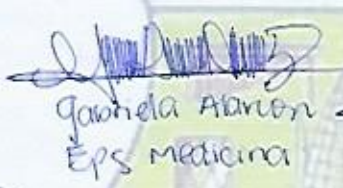 Gabriela Alarcon
Eps Medicina